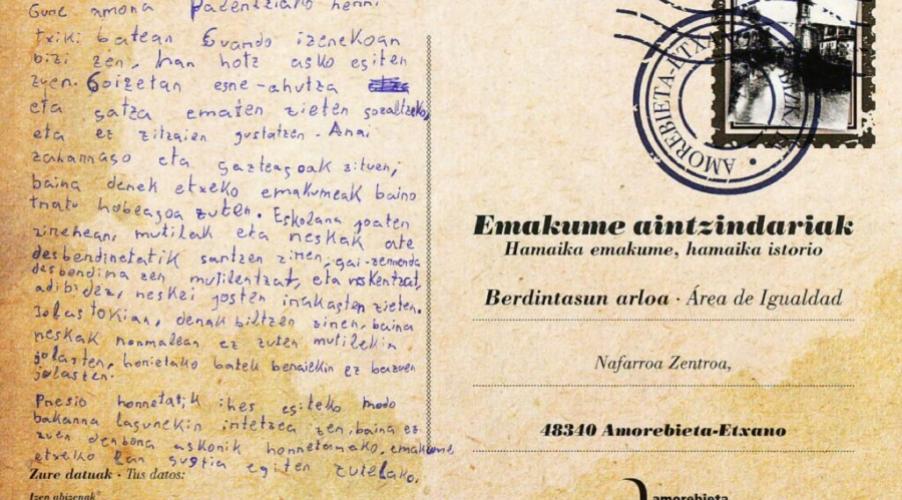 Gure amona Palentziako herri
txiki batean Guardo izenekoan
bizi zen, han hotz asko egiten
zuen. Goizetan esne-ahutza
eta gatza ematen zieten sozaltzeko,
eta ez zitzaien gustatzen. Anai
zaharrago eta gazteagoak zituen,
baina denek etxeko emakumeak baino
tratu hobeagoa zuten. Eskolara joaten
zirenean, mutilak eta neskak ate
desberdinetatik sartzen ziren, gai-zerrenda
desberdina zen mutilentzat, eta neskentzat,
adibidez, neskei josten irakasten zieten.
Jolastokian, denak biltzen ziren, baina
neskak normalean ez zuten mutilekin
jolasten, horietako batek beraiekin ez bazuen
jolasten.
Presio horretatik ihes egiteko modo
bakarra lagunekin irtetzea zen, baina ez
zuen denbora askorik horretarako, emakume
etxeko lan guztia egiten zutelako.
Zure datuak · Tus datos:
Izen abizenak*
AMOREBIETA-ETXANO
AMOREBIETA
Emakume aintzindariak
Hamaika emakume, hamaika istorio
Berdintasun arloa · Área de Igualdad
Nafarroa Zentroa,
48340 Amorebieta-Etxano
amorebieta